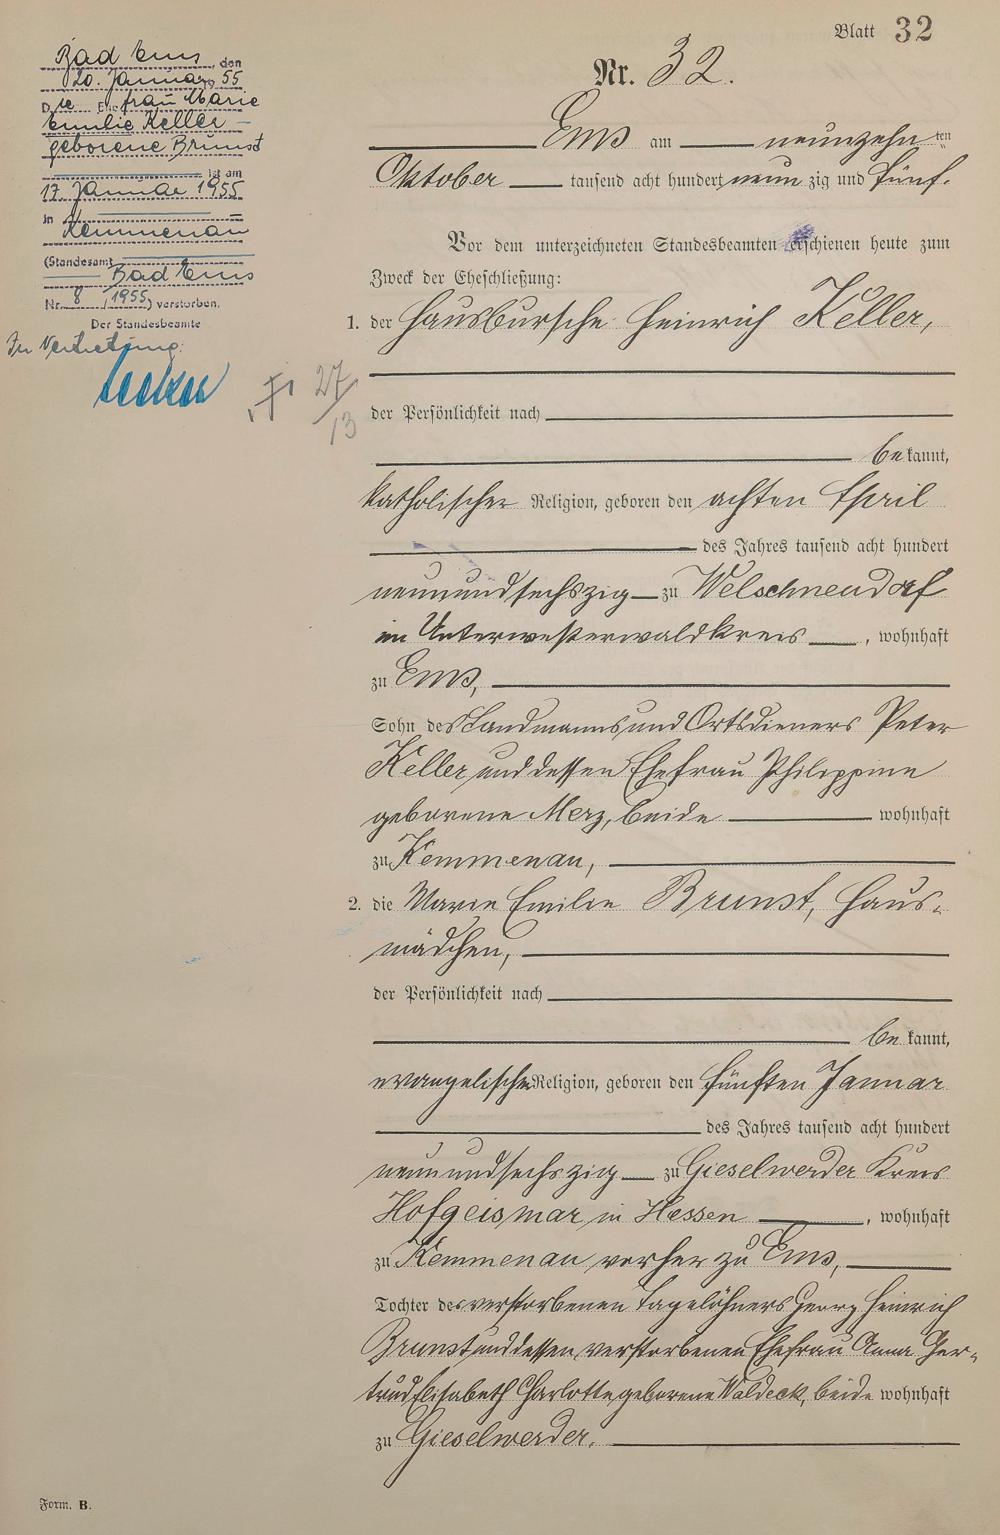 Blatt 32
Nr. 32.
Bad Ems, den
20. Januar 1955
Die Ehefrau Marie
Emilie Keller
geborene Brunst
ist am
17. Januar 1955
in
Kemmenau
(Standesamt
Bad Ems
Nr. 8/1955) verstorben.
Der Standesbeamte
In Vertretung:
27/13
Ems am neunzehnten
Oktober tausend acht hundert neunzig und fünf.
Vor dem unterzeichneten Standesbeamten erschienen heute zum
Zweck der Eheschließung:
1. der Hausbursche Heinrich Keller,
der Persönlichkeit nach
bekannt,
katholischer Religion, geboren den achten April
des Jahres tausend acht hundert
neunundsechszig zu Welschneudorf
im Unterwesterwaldkreis, wohnhaft
zu Ems,
Sohn des Landmanns und Ortsdieners Peter
Keller und dessen Ehefrau Philippine
geborene Merz, beide wohnhaft
zu Kemmenau,
2. die Marie Emilie Brunst, Haus-
mädchen,
der Persönlichkeit nach
bekannt,
evangelischer Religion, geboren den fünften Januar
des Jahres tausend acht hundert
neunundsechszig zu Gieselwerder Kreis
Hofgeismar in Hessen, wohnhaft
zu Kemmenau vorher zu Ems,
Tochter des verstorbenen Tagelöhners Georg Heinrich
Brunst und dessen verstorbenen Ehefrau Anna Ger-
trud Elisabeth Charlotte geborene Waldeck, beide wohnhaft
zu Gieselwerder.
Form. B.